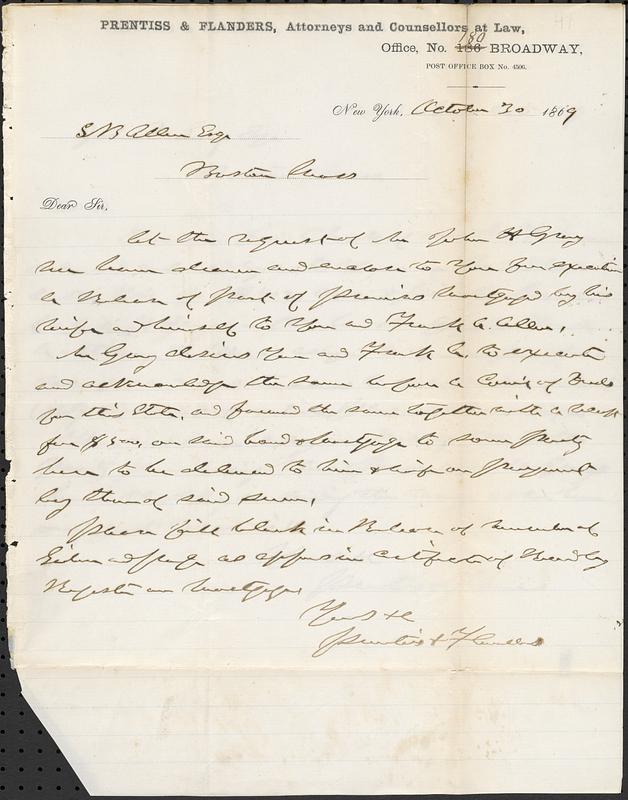 PRENTISS & FLANDERS, Attorneys and Counsellors at Law,
180
Office, No. 186 BROADWAY,
POST OFFICE BOX No. 4506.
New York, October 30 1869
S N B Allen Esq
Boston Mass
Dear Sir,
At the request of Mr John H Gray
we have drawn and enclose to you for execution
a Release of part of premises mortgaged by his
wife and himself to you and Frank A. Allen.
Mr Gray desires you and Frank A. to execute
and acknowledge the same before a Com'r of Deeds
for this State, and forward the same together with a receipt
for $500, on said bond & mortgage to some party
here to be delivered to him & wife on payment
by them of said sum.
Please fill blank in Release of number of
Liber and page as appears in certificate of
Register on mortgage.
Yours &c
Prentiss & Flanders